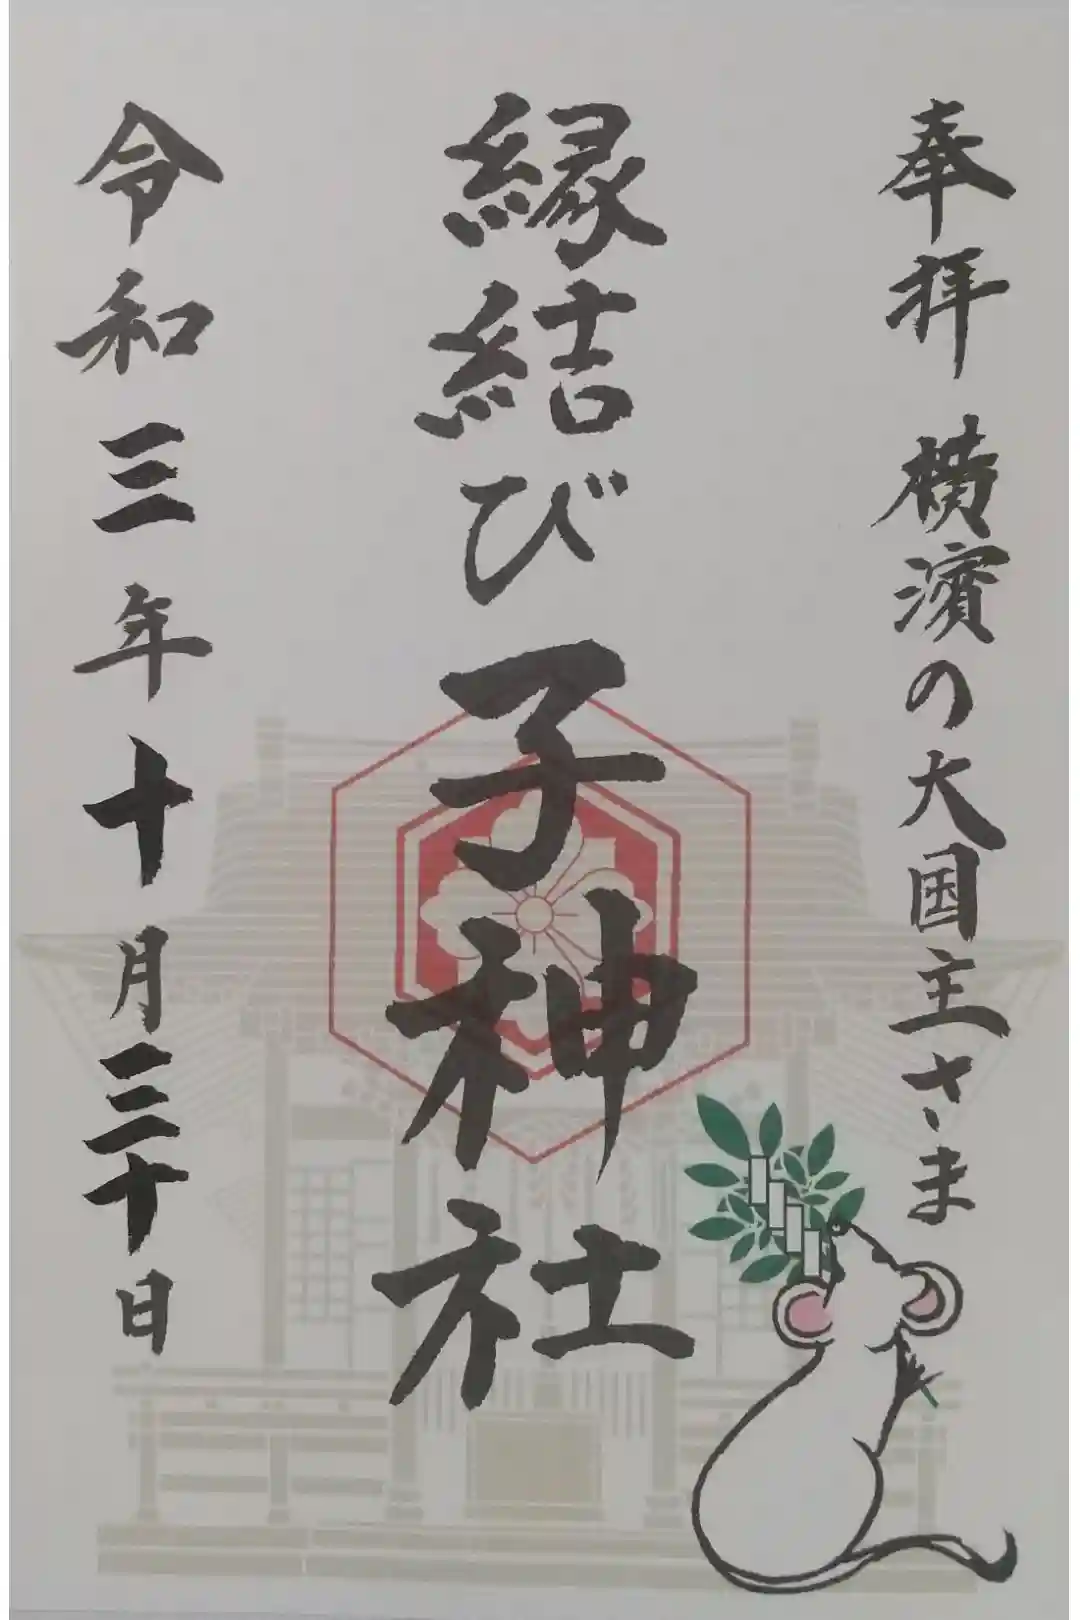 奉拝 横濱の大国主さま
縁結び 子神社
令和三年十月三十日